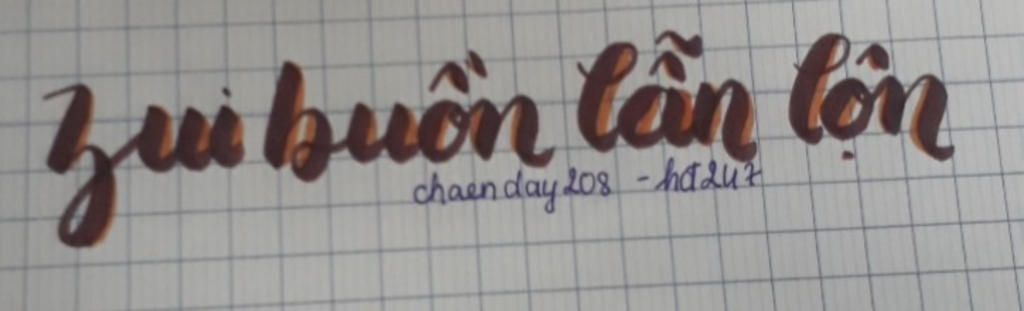 zui buồn lẫn lộn
chaenday208 - hđ247